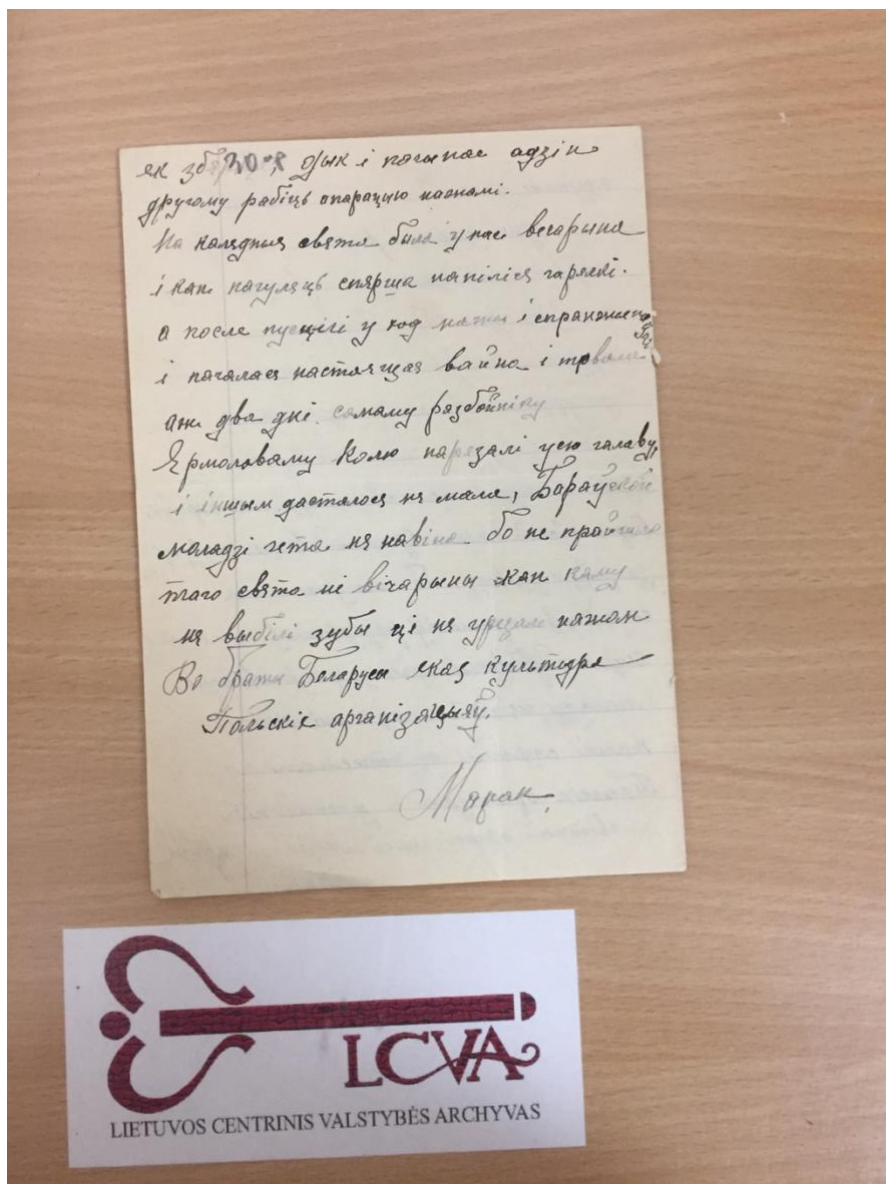 як зб 30-р, дык і пачынае адзін
другому рабіць опарацыю нажамі.
На калядныя свята была ў нас вечарына
і каж пагуляць спярша напіліся гарэлкі.
а после пусцілі у ход нажы і спранжыны
і началася настоящая вайна і трвала
аж два дні. самаму разбойніку
Ярмоловаму Колю парэзалі усю галаву,
і іншым дасталося ня мала, Бараўской
моладзі гета ня навіна. бо не пройшло
таго свята ні вічарыны каж каму
ня выбілі зубы ці ня урэзалі нажом
Во браты Беларусы якая культура
Польскіх арганізацыяў.
Марак.
LCVA
LIETUVOS CENTRINIS VALSTYBĖS ARCHYVAS